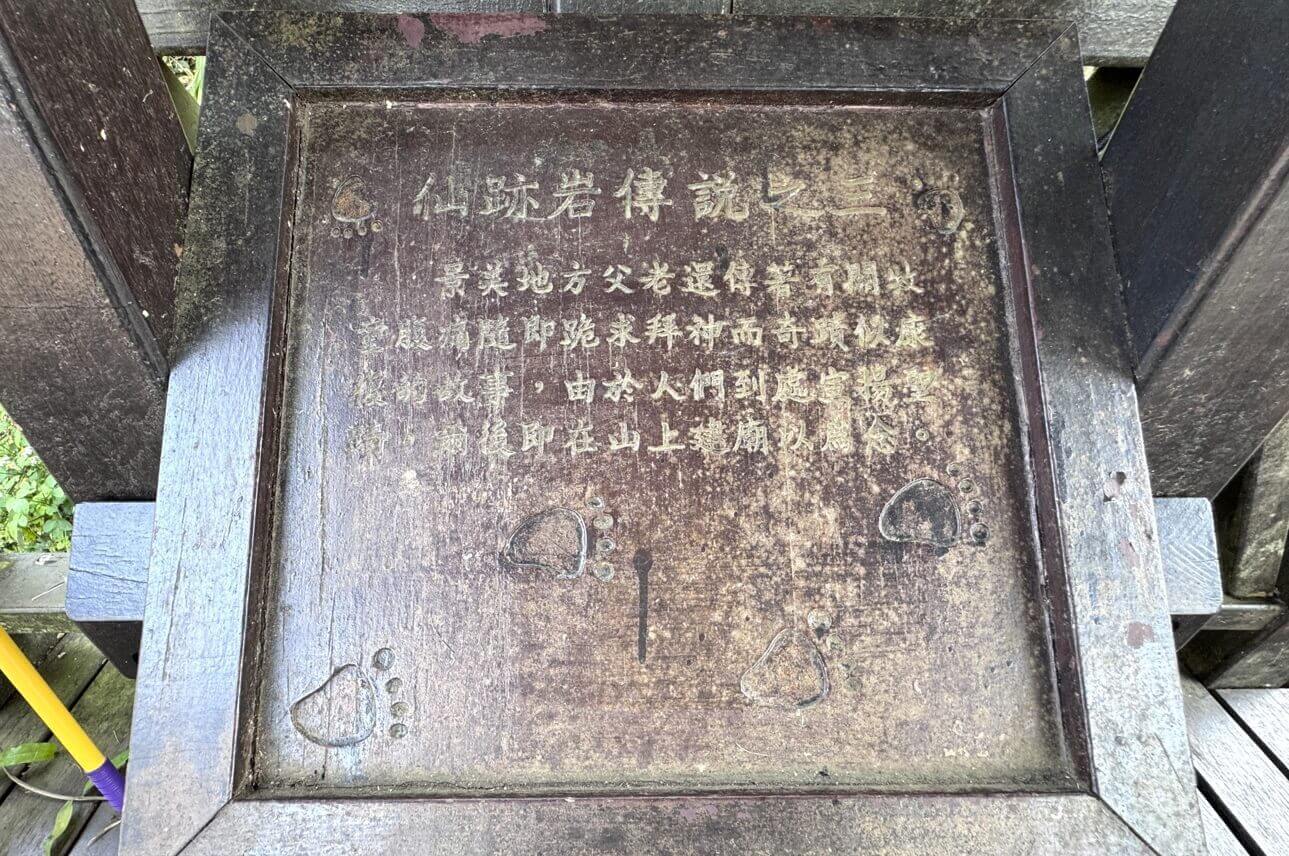 仙跡岩傳說之三
景美地方父老還傳著有關牧
童腹痛隨即跪求拜神而奇蹟似康
復的故事，由於人們到處宣揚聖
蹟，爾後即在山上建廟以爲念。